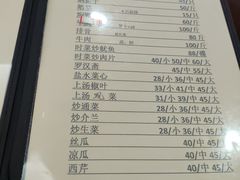 50/斤
15/只
60/斤
排骨 100/斤
牛肉 80斤
时菜炒鱿鱼 88/碟
时菜炒肉片 40/小50/中60/大
罗汉斋 35/小45/中55/大
盐水菜心 28/小36/中45/大
上汤椒叶 33/小41/中45/大
上汤 菜 31/小39/中45/大
炒通菜 28/小36/中45/大
炒介兰 28/小36/中45/大
炒生菜 28/小36/中45/大
丝瓜 40/中45/大
凉瓜 40/中45/大
西芹 40/中45/大